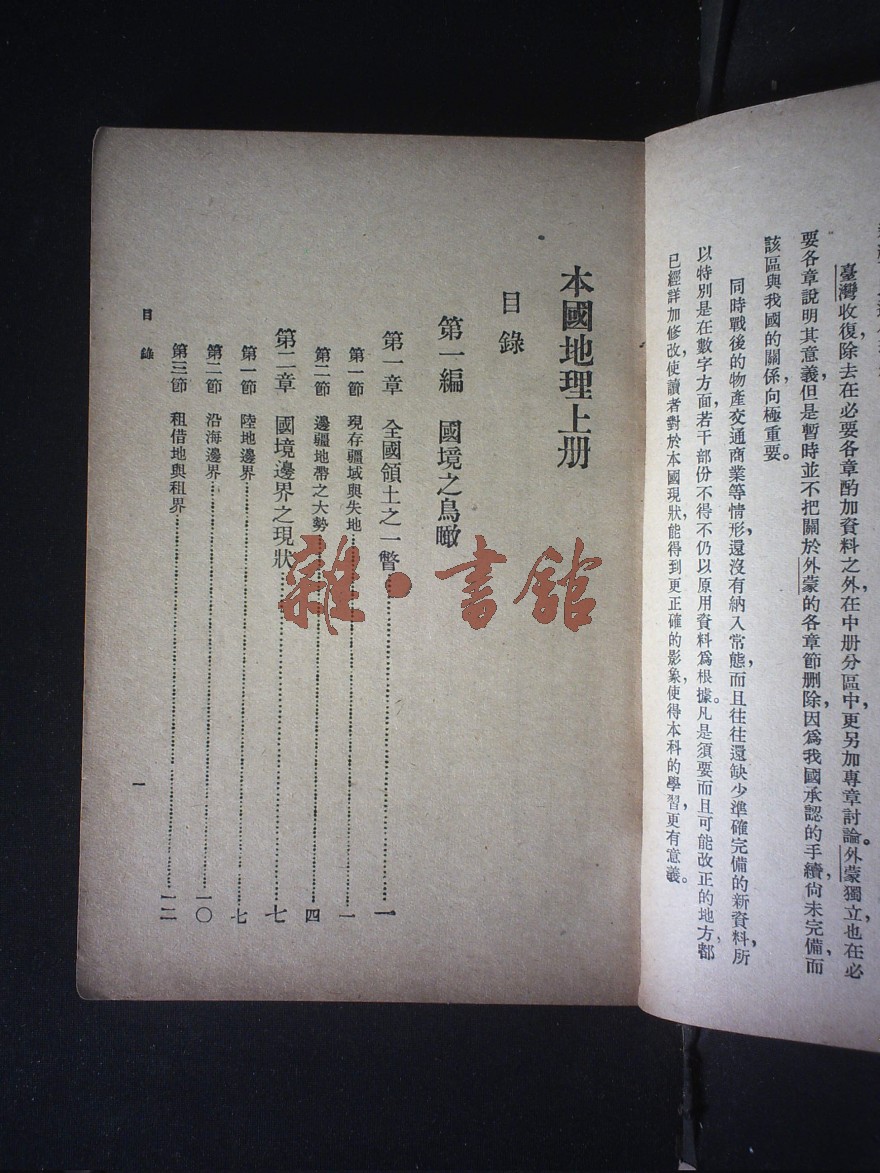 臺灣收復除去在必要各章酌加資料之外，在中册分區中，更另加專章討論。外蒙獨立也在必
要各章說明其意義，但是暫時並不把關於外蒙的各章節删除，因爲我國承認的手續，尙未完備，而
該區與我國的關係，向極重要。
同時戰後的物產交通商業等情形，還沒有納入常態，而且往往還缺少準確完備的新資料，所
以特別是在數字方面，若干部份不得不仍以原用資料爲根據。凡是須要而且可能改正的地方，都
已經詳加修改，使讀者對於本國現狀，能得到更正確的影象，使得本科的學習，更有意義。
本國地理上册
目錄
第一編　國境之鳥瞰
第一章　全國領土之一瞥……………………一
第一節　現存疆域與失地……………………一
第二節　邊疆地帶之大勢……………………四
第二章　國境邊界之現狀……………………七
第一節　陸地邊界……………………七
第二節　沿海邊界……………………一〇
第三節　租借地與租界……………………一二
目錄
一
雜·書館